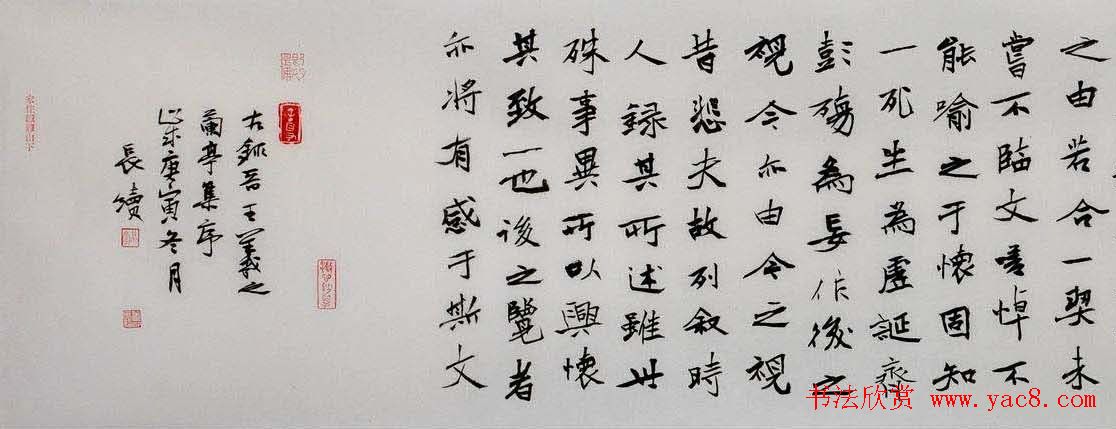 之由若合一契未
嘗不臨文嗟悼不
能喻之于懷固知
一死生為虛誕齊
彭殤為妄作後之
視今亦由今之視
昔悲夫故列敘時
人錄其所述雖世
殊事異所以興懷
其致一也後之覽者
亦將有感于斯文
右錄晉王羲之
蘭亭集序
歲庚寅冬月
長續
书法欣赏 www.yac8.com